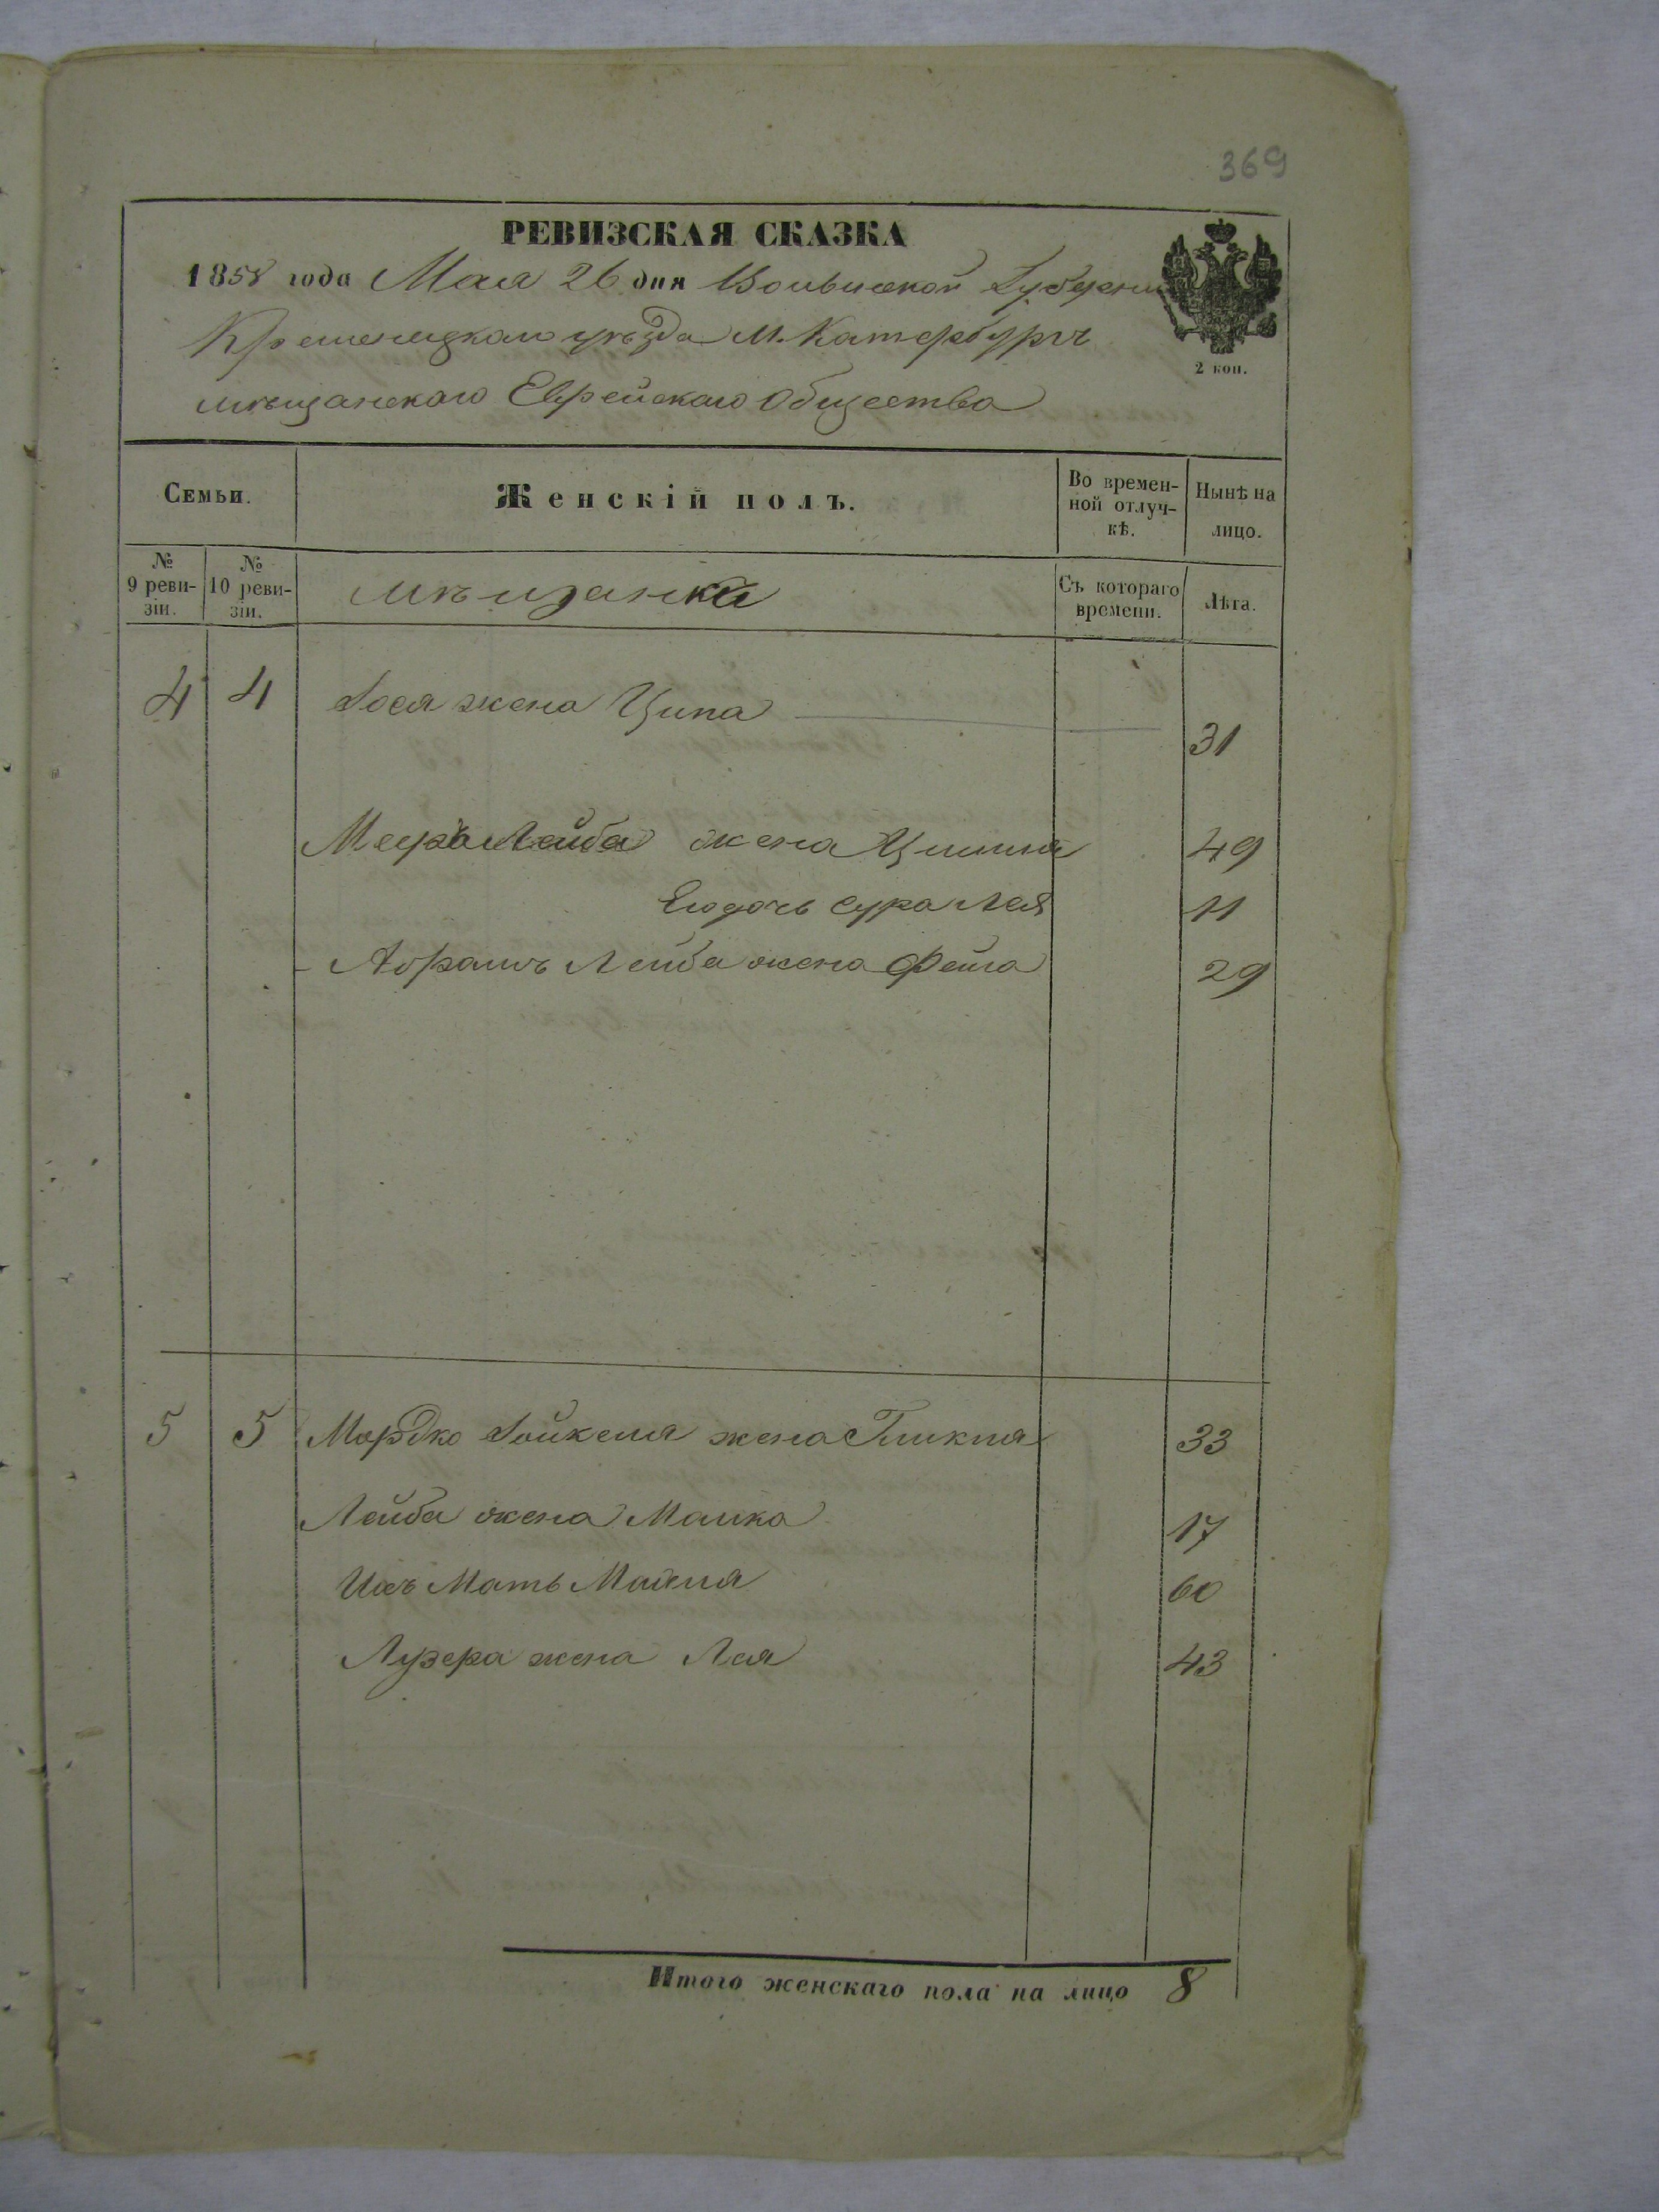 369
РЕВИЗСКАЯ СКАЗКА
1858 года Мая 26 дня Волынской Губерніи
Кременецкаго уѣзда М. Катербургъ
мѣщанскаго Еврейскаго Общества
2 коп.
Семьи.
Женскій полъ.
Во времен-
ной отлуч-
кѣ.
Нынѣ на
лицо.
№
9 реви-
зіи.
№
10 реви-
зіи.
мѣщанки
Съ котораго
времени.
Лѣта.
4 4 жена Ципа 31
Лейба жена 49
Его дочь Сура Лея 11
Абрамъ Лейба жена Фейга 29
5 5 Мордко жена Гликля 33
Лейба жена Малка 17
Ихъ Мать 60
Лузера жена Лея 43
Итого женскаго пола на лицо 8